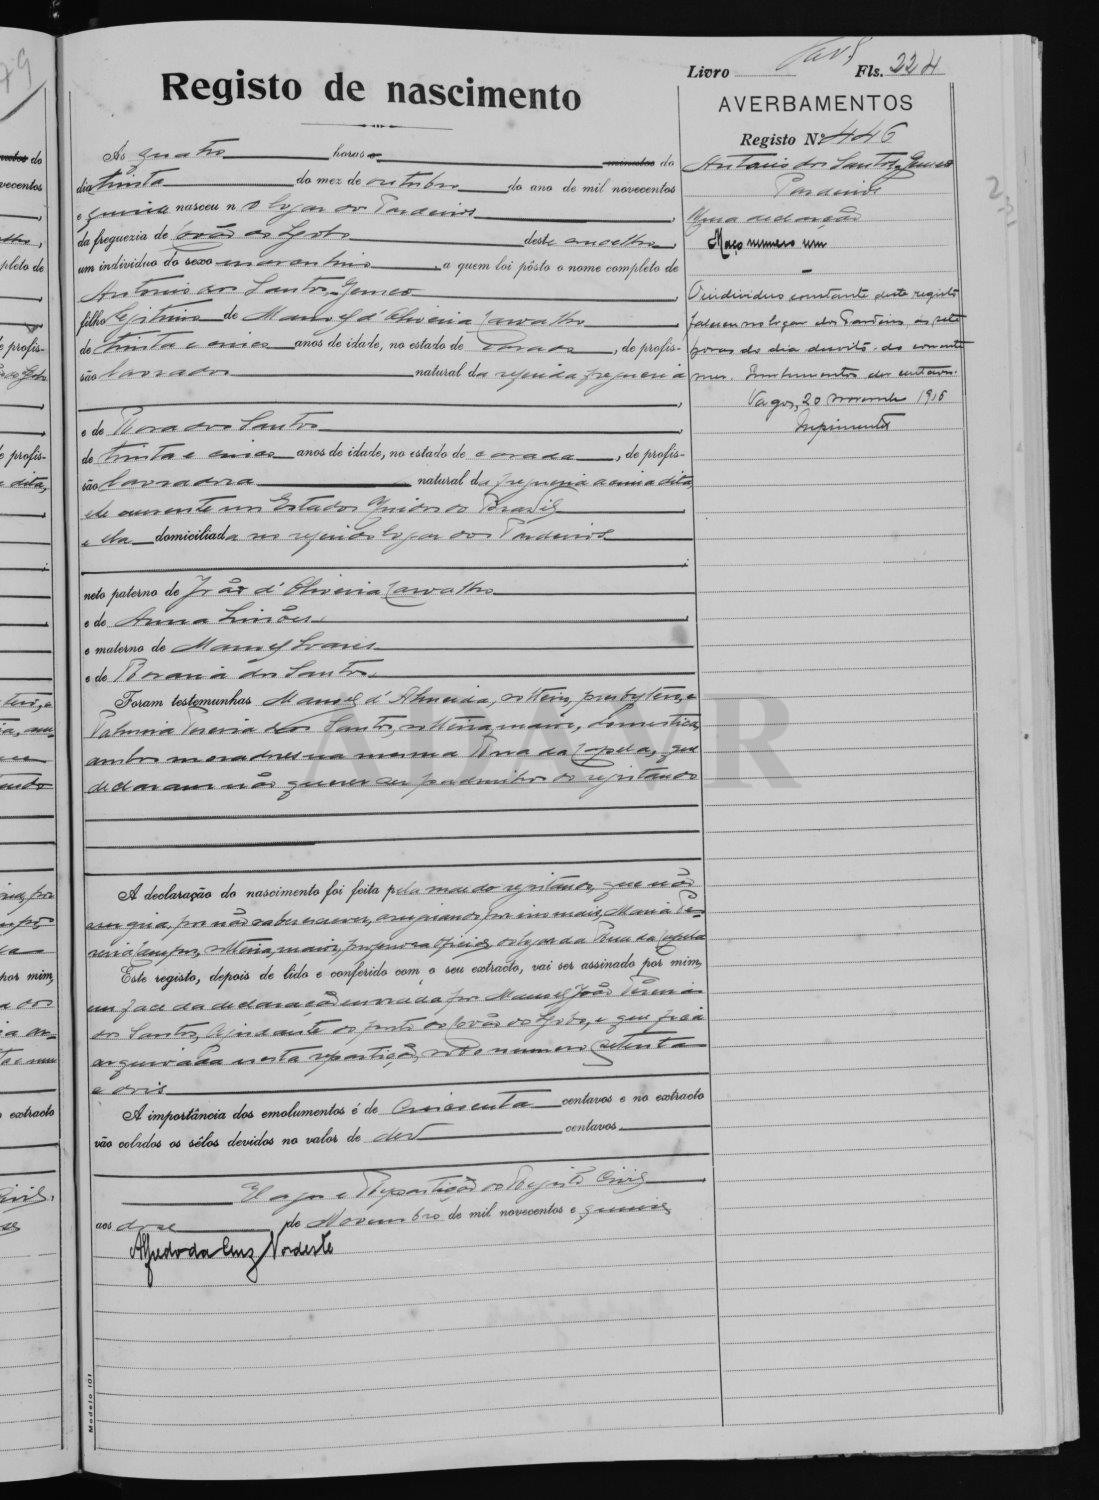 Livro Fls. 224
Registo de nascimento
AVERBAMENTOS
Registo Nº 446
Antonio dos Santos, Gemeo
Pardeiros
Uma declaração
Maço numero um
O individuo constante deste registo
faleceu no logar dos Pardeiros, ás sete
horas do dia dezoito do corrente
mez. Emolumentos dez centavos.
Vagos, 20 novembro 1915
Ás quatro horas e minutos do
dia trinta do mez de outubro do ano de mil novecentos
e quinze nasceu n o logar dos Pardeiros,
da freguezia de Sôza deste concelho,
um individuo do sexo masculino, a quem foi pôsto o nome completo de
Antonio dos Santos, Gemeo
filho legitimo de Manuel d'Oliveira Carvalho,
de trinta e cinco anos de idade, no estado de casado, de profis-
são lavrador natural da referida freguesia
e de Rosa dos Santos,
de trinta e cinco anos de idade, no estado de casada, de profis-
são lavradora natural da freguesia acima dita,
ele ausente nos Estados Unidos do Brasil
e ela domiciliada no referido logar dos Pardeiros
neto paterno de João d'Oliveira Carvalho
e de Anna Simões,
e materno de Manuel Soares
e de Rosaria dos Santos,
Foram testemunhas Manuel d'Almeida, solteiro, presbytero, e
Palmira Pereira dos Santos, solteira, maior, domestica,
ambos moradores na mesma Rua da Capela, que
declararam não querer ser padrinhos do registando
ADAVR
A declaração do nascimento foi feita pela mae do registando, que não
assigna, por não saber escrever, assignando por ella, Maria Pe-
reira solteira, maior, do logar da Rua da Capela
Este registo, depois de lido e conferido com o seu extracto, vai ser assinado por mim,
em face da declaração enviada por Manuel João Pereira
dos Santos, Ajudante do posto e que fica
arquivada nesta repartição, sob o numero setenta
e dois
A importância dos emolumentos é de cincoenta centavos e no extracto
vão colados os sêlos devidos no valor de dez centavos.
Vagos e Repartição do Registo Civil,
aos doze de Novembro de mil novecentos e quinze
Alfredo da Cruz Nordeste
Modelo 101